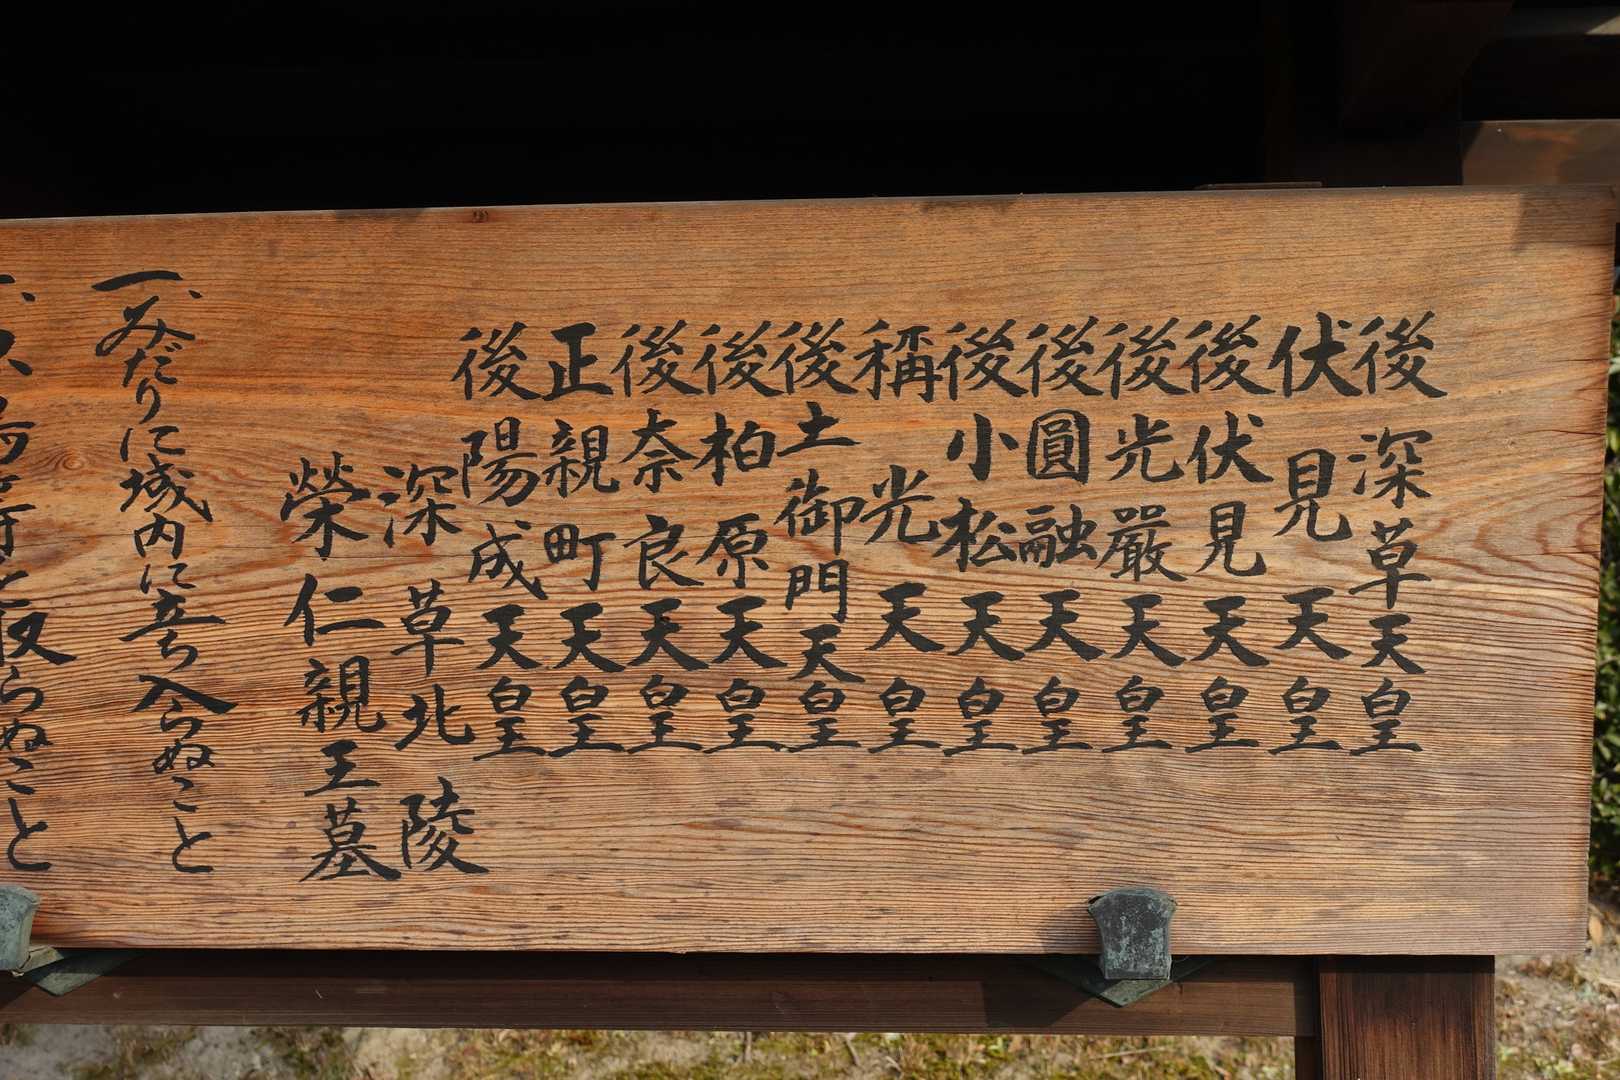 後深草天皇
伏見天皇
後伏見天皇
後光嚴天皇
後圓融天皇
後小松天皇
稱光天皇
後土御門天皇
後柏原天皇
後奈良天皇
正親町天皇
後陽成天皇
深草北陵
榮仁親王墓
一、みだりに域内に立ち入らぬこと
取らぬこと